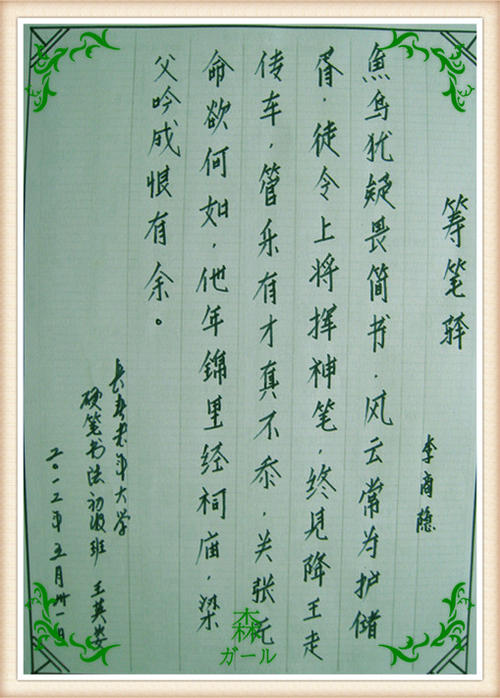 筹笔驿
李商隐
魚鸟犹疑畏简书，风云常为护储
胥，徒令上将挥神笔，终见降王走
传车，管乐有才真不忝，关张无
命欲何如，他年錦里经祠庙，梁
父吟成恨有余。
长春老年大学
硬笔书法初级班 王英
二〇一二年五月卅一日
森
ガール